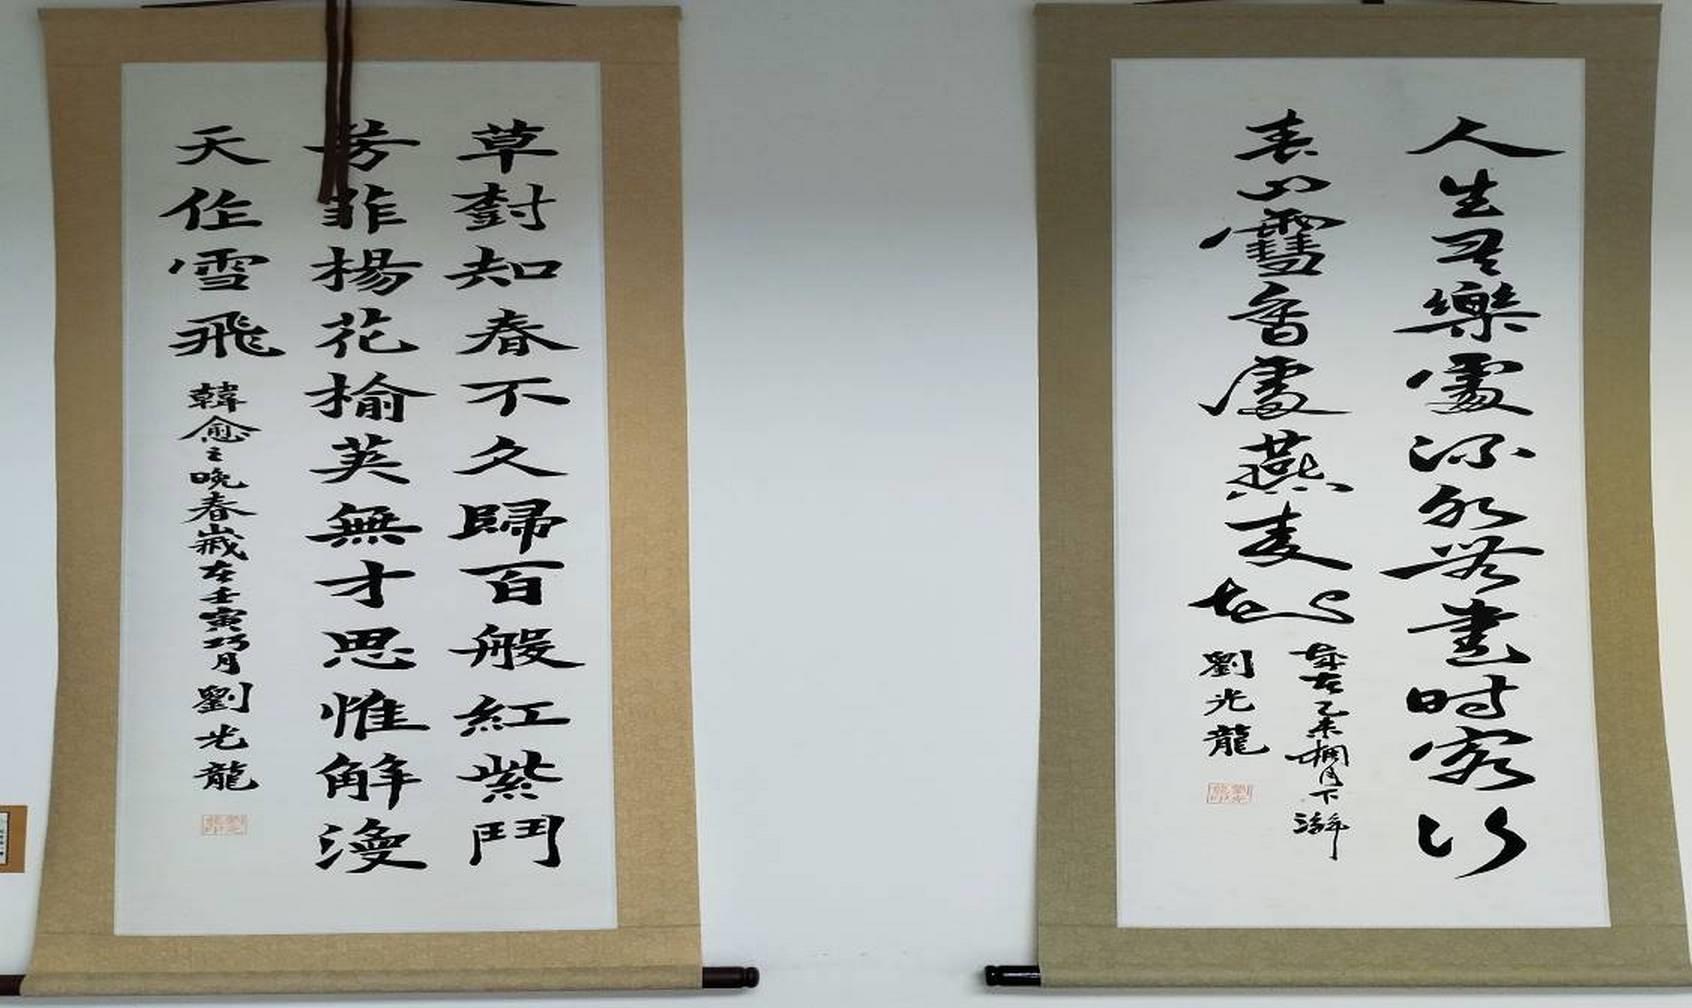 人生樂處書時客
春山香處燕麦
歲在乙未桐月下澣
劉光龍
劉光龍印
草樹知春不久歸百般紅紫鬥
芳菲楊花榆莢無才思惟解漫
天作雪飛 韓愈之晚春歲在壬寅巧月劉光龍
劉光龍印